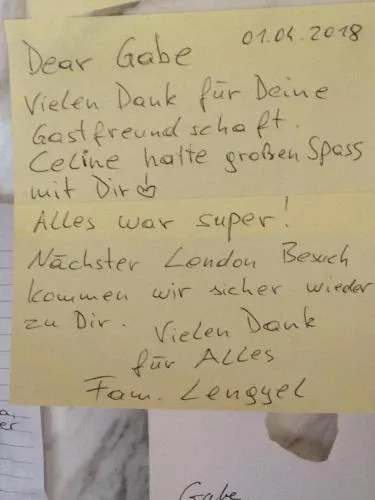 01.04.2018
Dear Gabe
Vielen Dank für Deine
Gastfreundschaft.
Celine hatte großen Spass
mit Dir
Alles war super!
Nächster London Besuch
kommen wir sicher wieder
zu Dir. Vielen Dank
für Alles
Fam. Lengyel
Gabe